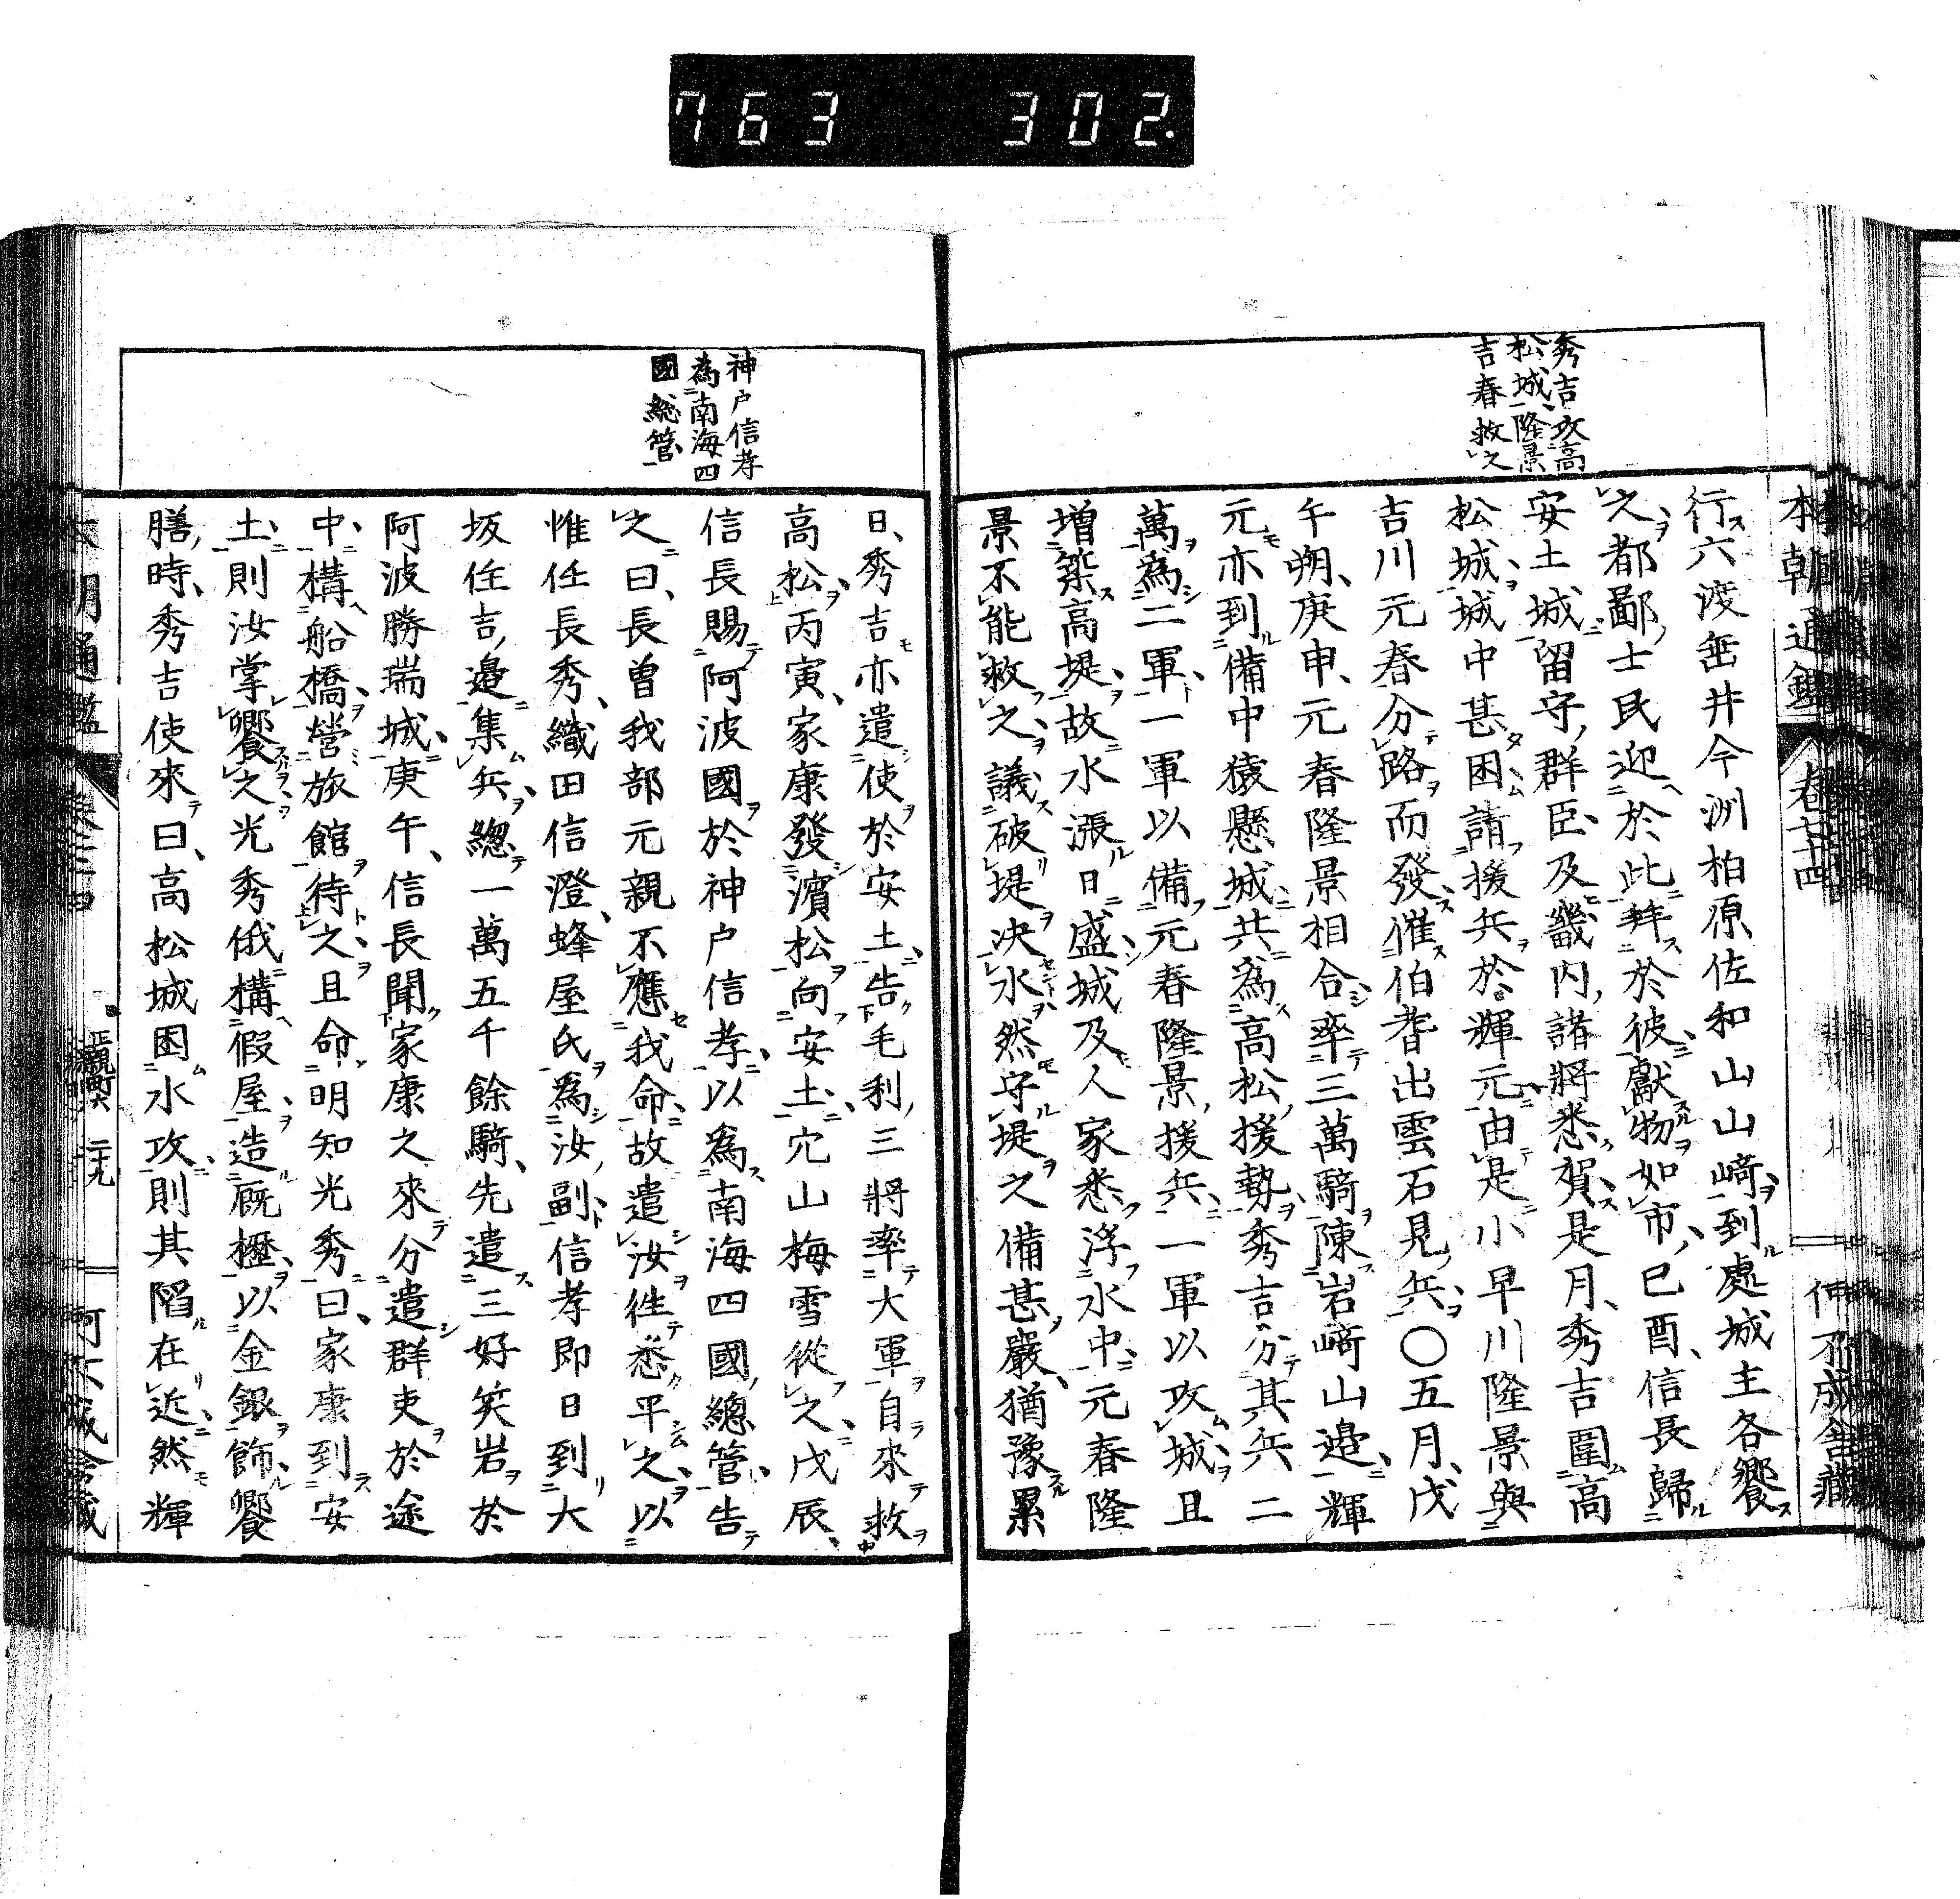 763 302.
秀吉攻高
松城隆景
吉春救之
行六渡垂井今洲柏原佐和山山﨑到處城主各饗
之都鄙士民迎於此拜於彼獻物如市己酉信長歸
安土城留守群臣及畿内諸將悉賀是月秀吉圍高
松城城中甚困請援兵於輝元由是小早川隆景與
吉川元春分路而發催伯耆出雲石見兵〇五月戊
午朔庚申元春隆景相合率三萬騎陳岩﨑山邉輝
元亦到備中猿懸城共爲高松援勢秀吉分其兵二
萬爲二軍一軍以備元春隆景援兵一軍以攻城且
増築高堤故水漲日盛城及人家悉浮水中元春隆
景不能救之議破堤决水然守堤之備甚嚴猶豫累
神戸信孝
為南海四
國総管
日秀吉亦遣使於安土告毛利三將率大軍自來救
高松丙寅家康發濱松向安土穴山梅雪從之戊辰
信長賜阿波國於神戸信孝以爲南海四國總管告
之曰長曽我部元親不應我命故遣汝往悉平之以
惟任長秀織田信澄蜂屋氏爲汝副信孝即日到大
坂住吉邉集兵總一萬五千餘騎先遣三好笑岩於
阿波勝瑞城庚午信長聞家康之來分遣群吏於途
中構船橋營旅館待之且命明知光秀曰家康到安
土則汝掌饗之光秀俄構假屋造厩櫪以金銀飾饗
膳時秀吉使來曰高松城困水攻則其陷在近然輝